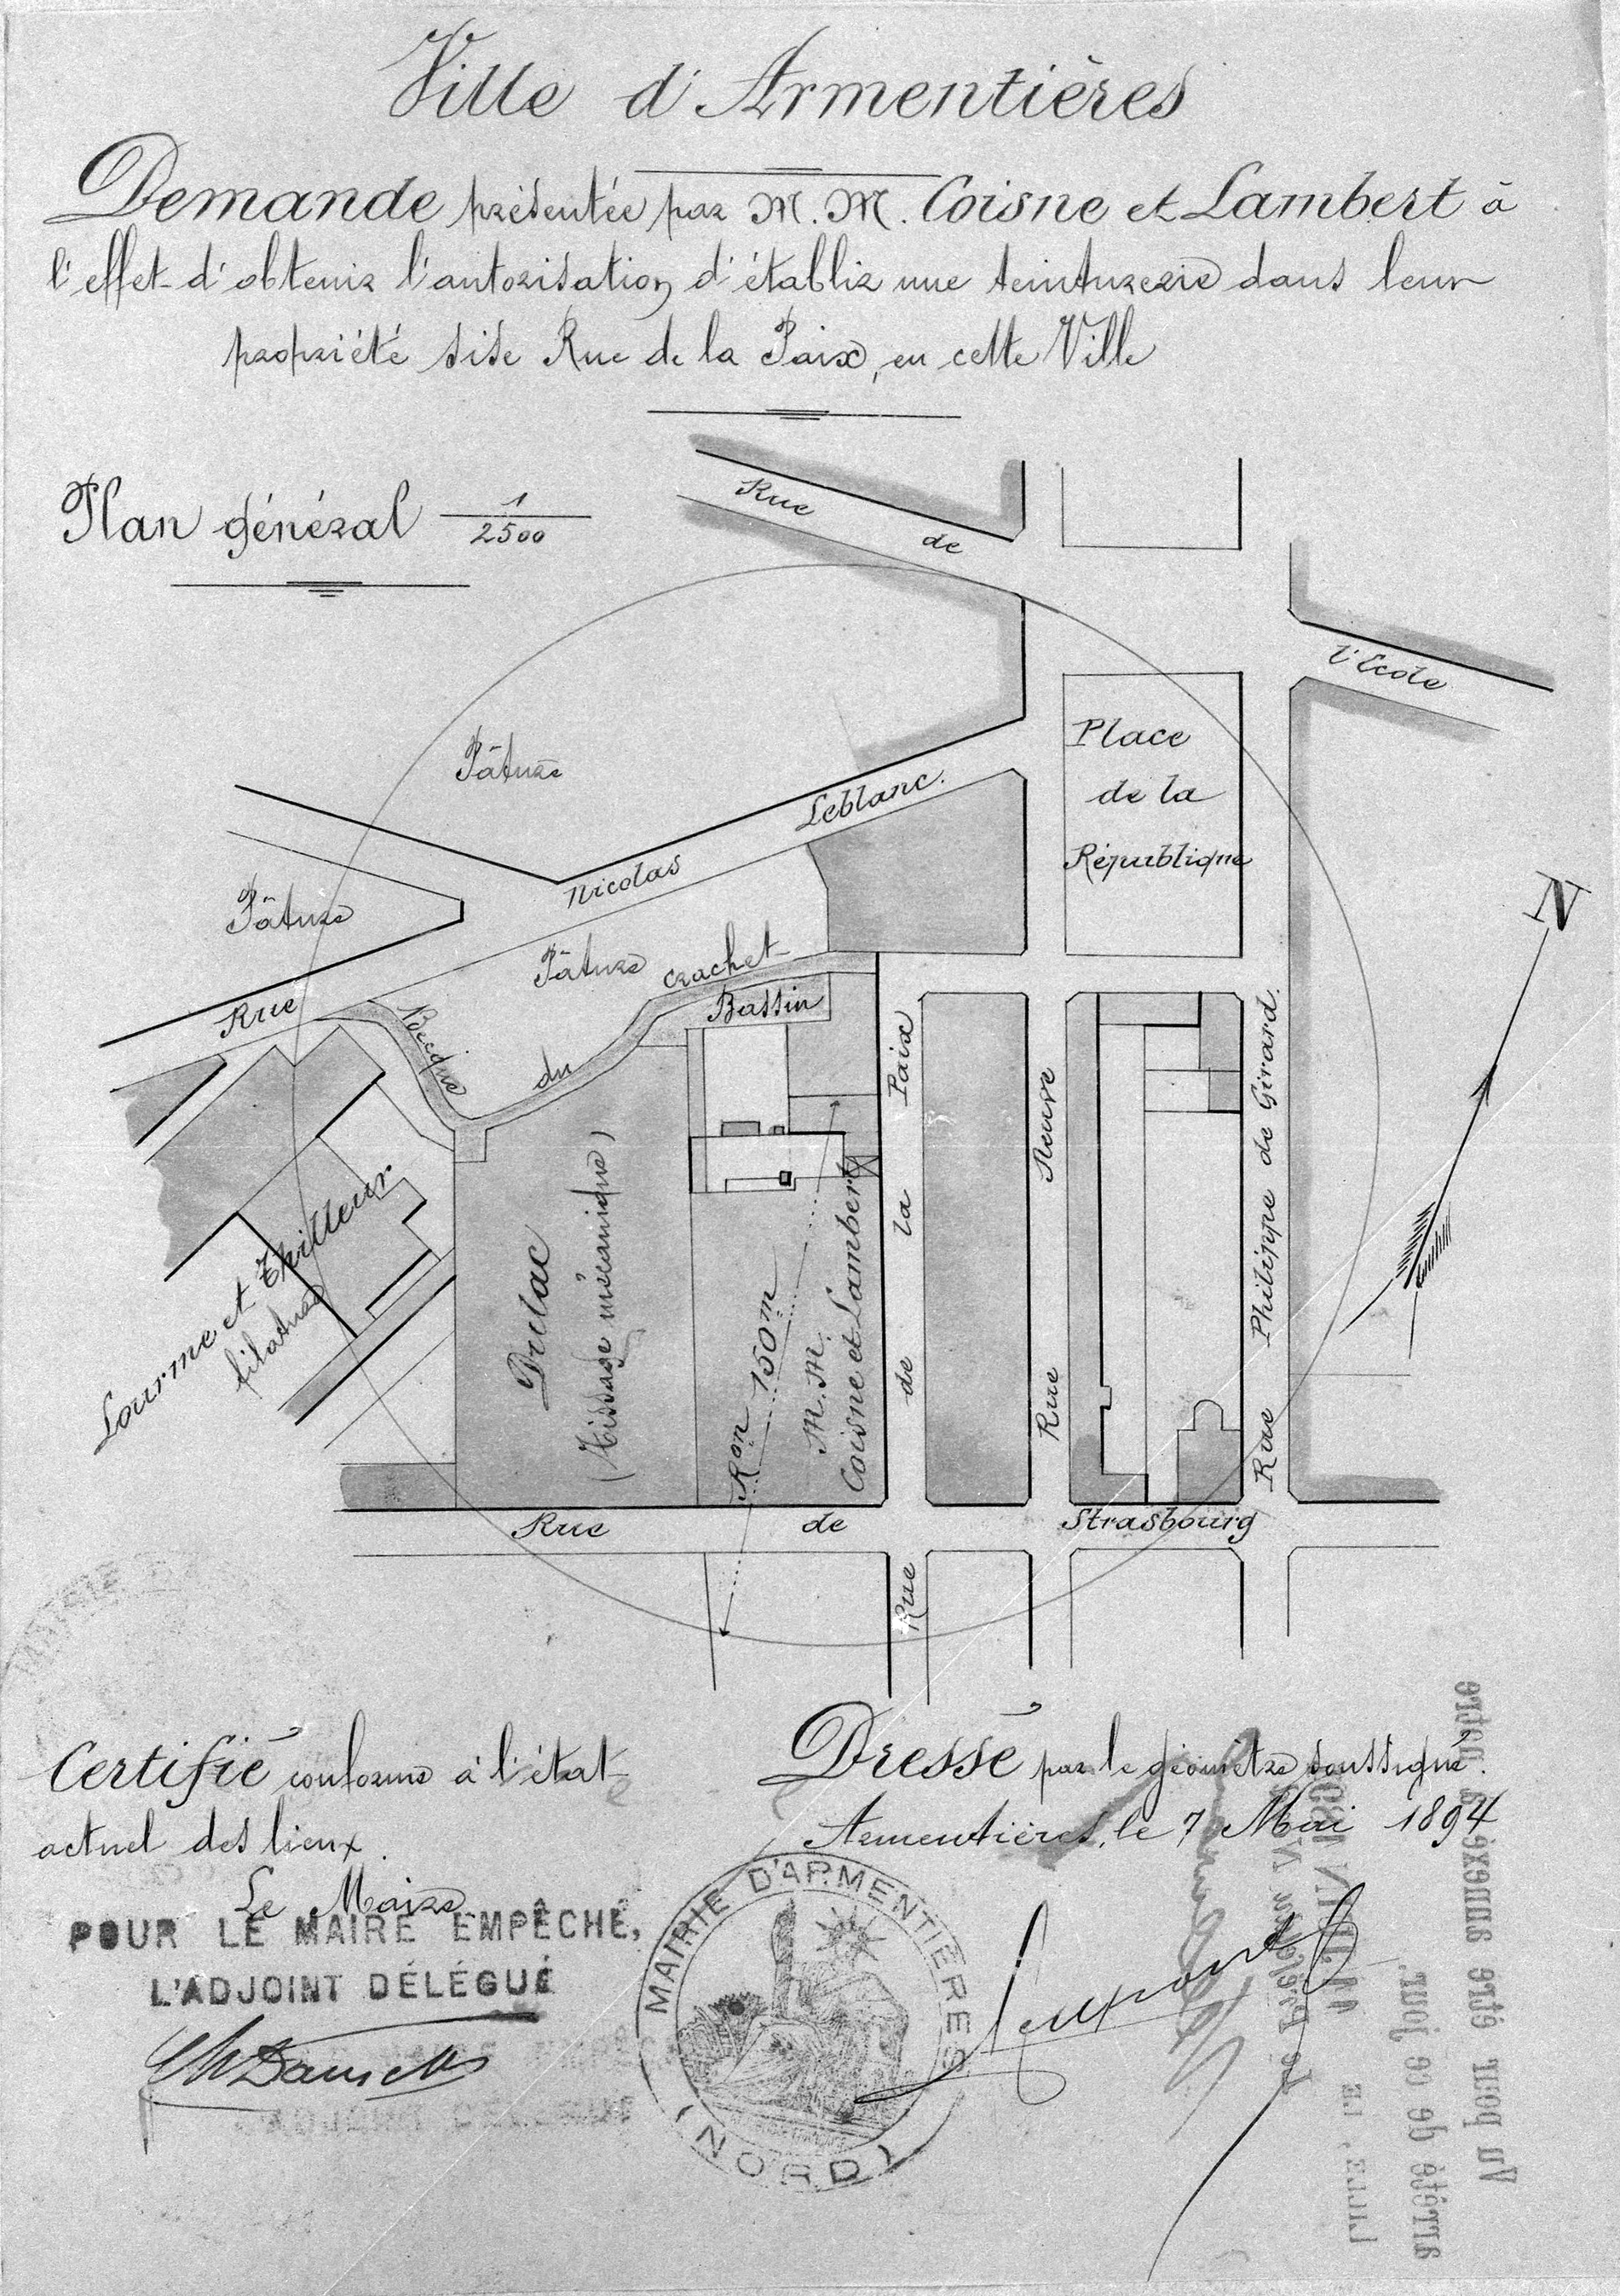 Ville d'Armentières
Demande présentée par M.M. Coisne et Lambert à
l'effet d'obtenir l'autorisation d'établir une teinturerie dans leur
propriété sise Rue de la Paix, en cette Ville
Plan général 1/2500
Rue de l'Ecole
Place
de la
République
Pâture
Pâture
Pâture
Rue Nicolas Leblanc.
Becque du crachet
Bassin
N
Lourme et Thilleur
filature
Dulac
(Tissage mécanique)
Ron 150m
M.M.
Coisne et Lambert
Rue de la Paix
Rue Neuve
Rue Philippe de Girard.
Rue de Strasbourg
Certifié conforme à l'état
actuel des lieux.
Le Maire
POUR LE MAIRE EMPÊCHÉ,
L'ADJOINT DÉLÉGUÉ
Dressé par le géomètre soussigné.
Armentières, le 7 Mai 1894
MAIRIE D'ARMENTIERES
(NORD)
Vu pour être annexé à notre
arrêté de ce jour.
LILLE, LE
Le Préfet du Nord